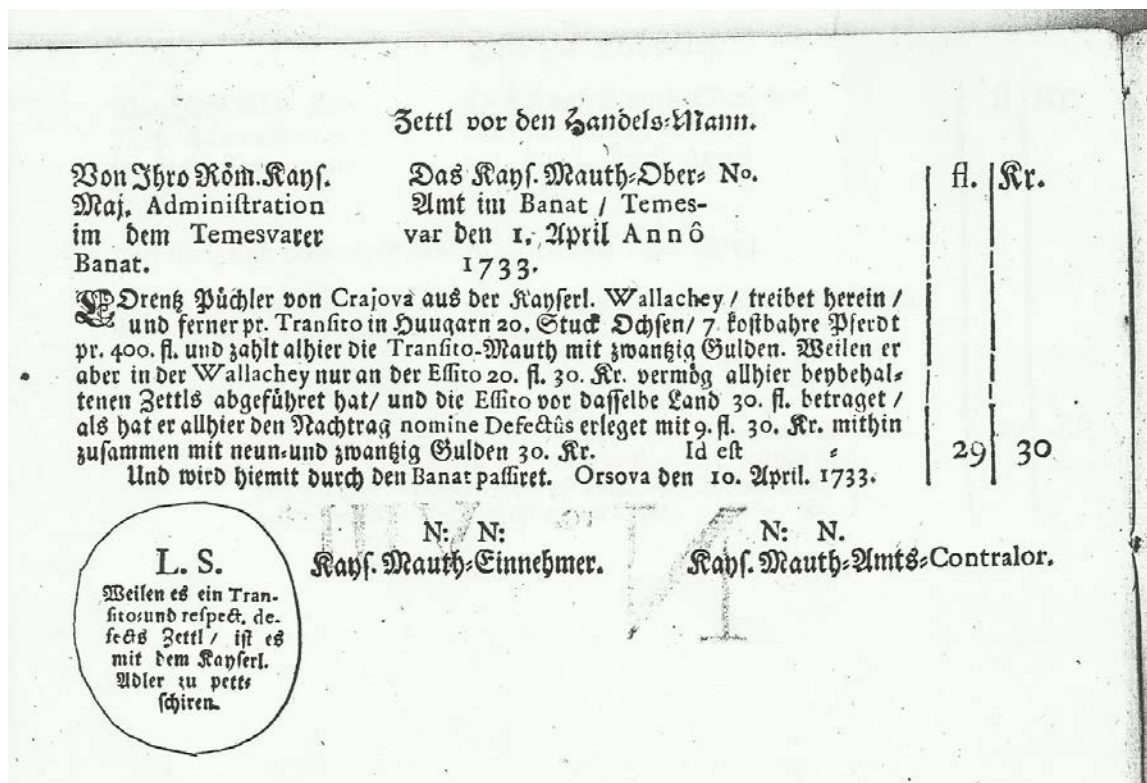 Zettl vor den Handels-Mann.
Von Ihro Röm. Kayſ.
Maj. Adminiſtration
im dem Temesvarer
Banat.
Das Kayſ. Mauth-Ober- No.
Amt im Banat / Temes-
var den 1. April Annô
1733.
fl. Kr.
LOrentz Püchler von Crajova aus der Kayſerl. Wallachey / treibet herein /
und ferner pr. Tranſito in Huugarn 20. Stuck Ochſen / 7 koſtbahre Pferdt
pr. 400. fl. und zahlt alhier die Tranſito-Mauth mit zwantzig Gulden. Weilen er
aber in der Wallachey nur an der Eſſito 20. fl. 30. Kr. vermög allhier beybehal-
tenen Zettls abgeführet hat / und die Eſſito vor daſſelbe Land 30. fl. betraget /
als hat er allhier den Nachtrag nomine Defectûs erleget mit 9. fl. 30. Kr. mithin
zuſammen mit neun-und zwantzig Gulden 30. Kr. Id eſt - 29 30
Und wird hiemit durch den Banat paſſiret. Orsova den 10. April. 1733.
N: N:
Kayſ. Mauth-Einnehmer.
N: N.
Kayſ. Mauth-Amts-Contralor.
L. S.
Weilen es ein Tran-
ſito-und reſpect. de-
fects Zettl / iſt es
mit dem Kayſerl.
Adler zu pett-
ſchiren.